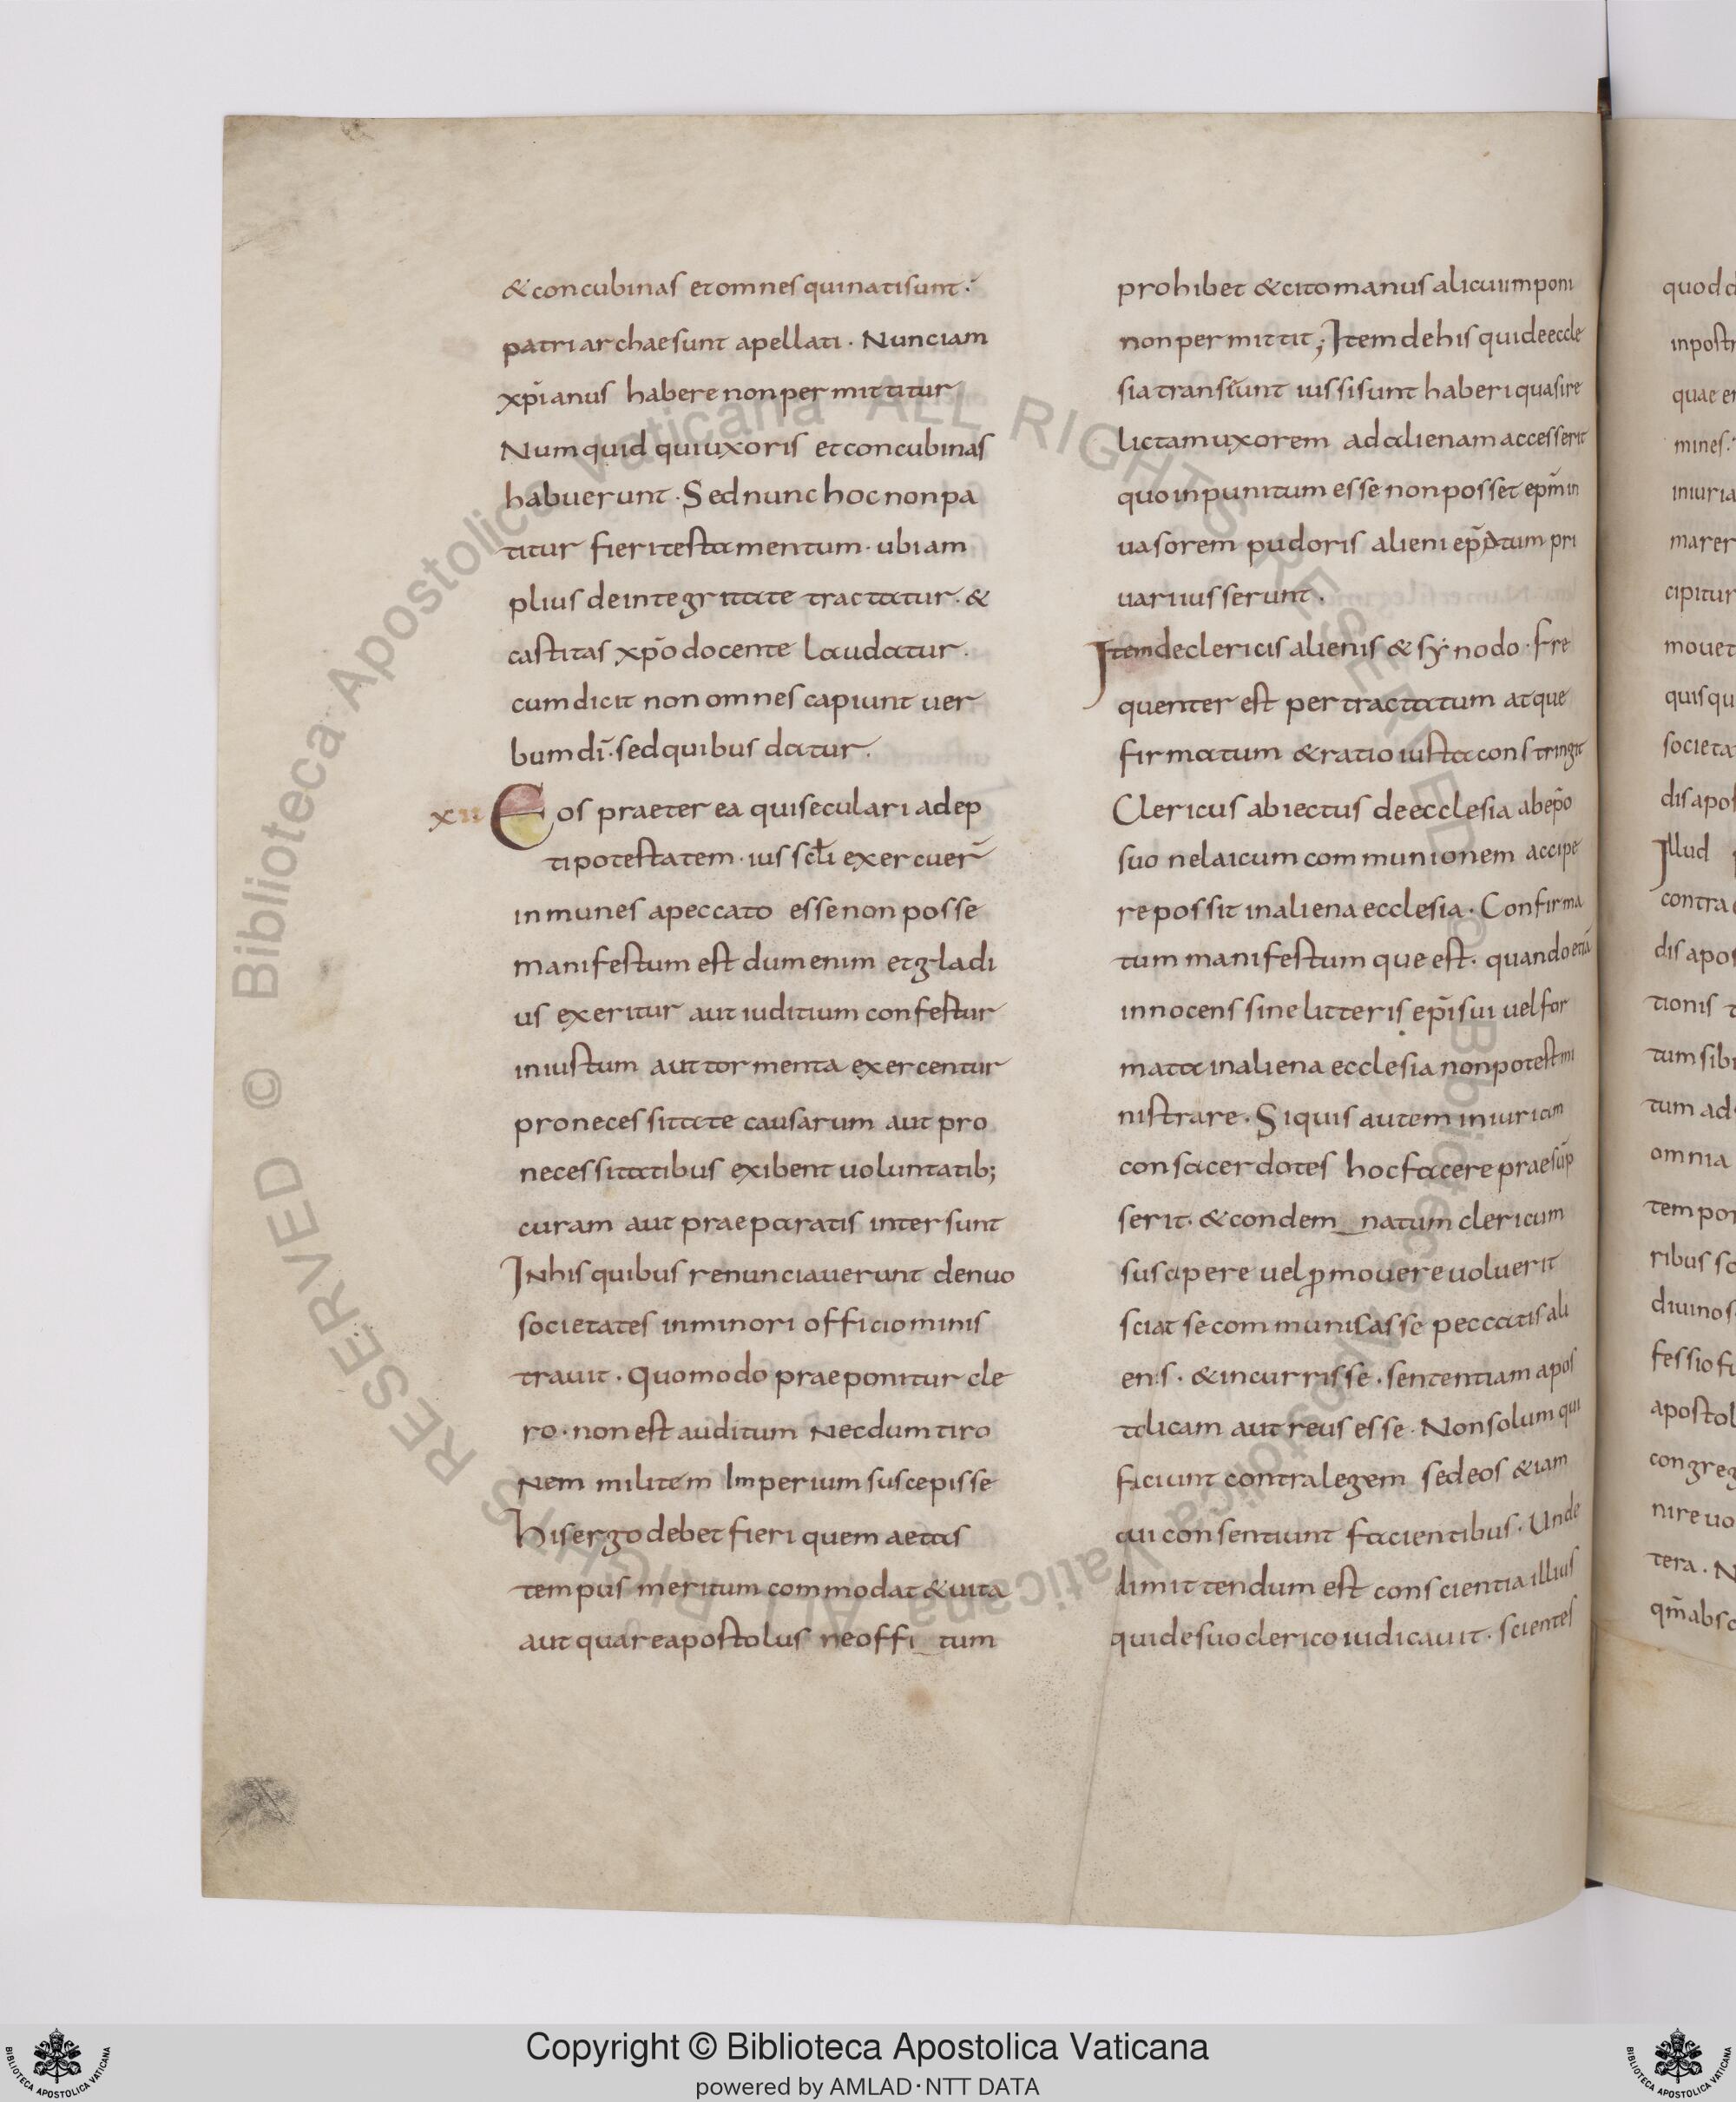 & concubinas et omnes qui nati sunt.
patriarchae sunt apellati. Nunc iam
xp̄ianus habere non permittitur
Numquid qui uxoris et concubinas
habuerunt. Sed nunc hoc non pa
titur fieri testamentum. ubi am
plius de integritate tractatur. &
castitas xp̄o docente laudatur.
cum dicit non omnes capiunt uer
bum dī. sed quibus datur.
xii Eos praeterea qui seculari adep
ti potestatem. ius scłi exercuer̄
inmunes a peccato esse non posse
manifestum est dum enim et gladi
us exeritur aut iuditium confestur
iniustum aut tormenta exercentur
pro necessitate causarum aut pro
necessitatibus exibent uoluntatib;
curam aut praeparatis intersunt
In his quibus renunciauerunt denuo
societates in minori officio minis
trauit. Quomodo praeponitur cle
ro. non est auditum Necdum tiro
nem militem Imperium suscepisse
His ergo debet fieri quem aetas
tempus meritum commodat & uita
aut quare apostolus neoffi_tum
prohibet & cito manus alicui imponi
non permittit; Item de his qui de eccle
sia transeunt iussi sunt haberi quasi re
lictam uxorem ad alienam accesserit
quo inpunitum esse non posset ep̄m in
uasorem pudoris alieni ep̄atum pri
uari iusserunt.
Item de clericis alienis & synodo. fre
quenter est pertractatum atque
firmatum & ratio iusta constringit
Clericus abiectus de ecclesia ab ep̄o
suo ne laicum communionem accipe
re possit in aliena ecclesia. Confirma
tum manifestumque est. quando etiā
innocens sine litteris ep̄i sui uel for
mata in aliena ecclesia non potest mi
nistrare. Si quis autem iniuriam
consacerdotes hoc facere praesūp
serit. & condem_natum clericum
suscipere uel ꝓmouere uoluerit
sciat se communicasse peccatis ali
enis. & incurrisse. sententiam apos
tolicam aut reus esse. Non solum qui
faciunt contra legem sed eos & iam
qui consentiunt facientibus. Unde
dimittendum est conscientia illius
qui de suo clerico iudicauit. scientes
quod
inpost
quae
mines.
iniuria
marer
cipitur
mouet
quis qu
societa
dis apos
Illud
contra
dis apos
tionis
tum sibi
tum ad
omnia
tempor
ribus
diuinos
fessio
apostol
congreg
nire uo
tera. N
qm̄ absc
© Biblioteca Apostolica Vaticana ALL RIGHTS RESERVED © Biblioteca Apostolica Vaticana ALL RIGHTS RESERVED
Copyright © Biblioteca Apostolica Vaticana
powered by AMLAD·NTT DATA
BIBLIOTECA APOSTOLICA VATICANA
BIBLIOTECA APOSTOLICA VATICANA